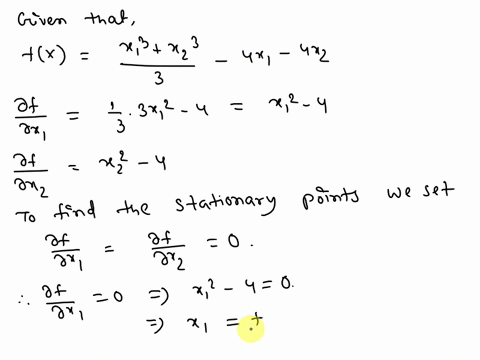 Given that,
f(x) = (x₁³ + x₂³)/3 - 4x₁ - 4x₂
∂f/∂x₁ = 1/3 · 3x₁² - 4 = x₁² - 4
∂f/∂x₂ = x₂² - 4
To find the stationary points we set
∂f/∂x₁ = ∂f/∂x₂ = 0.
∴ ∂f/∂x₁ = 0 ⇒ x₁² - 4 = 0.
⇒ x₁ = +